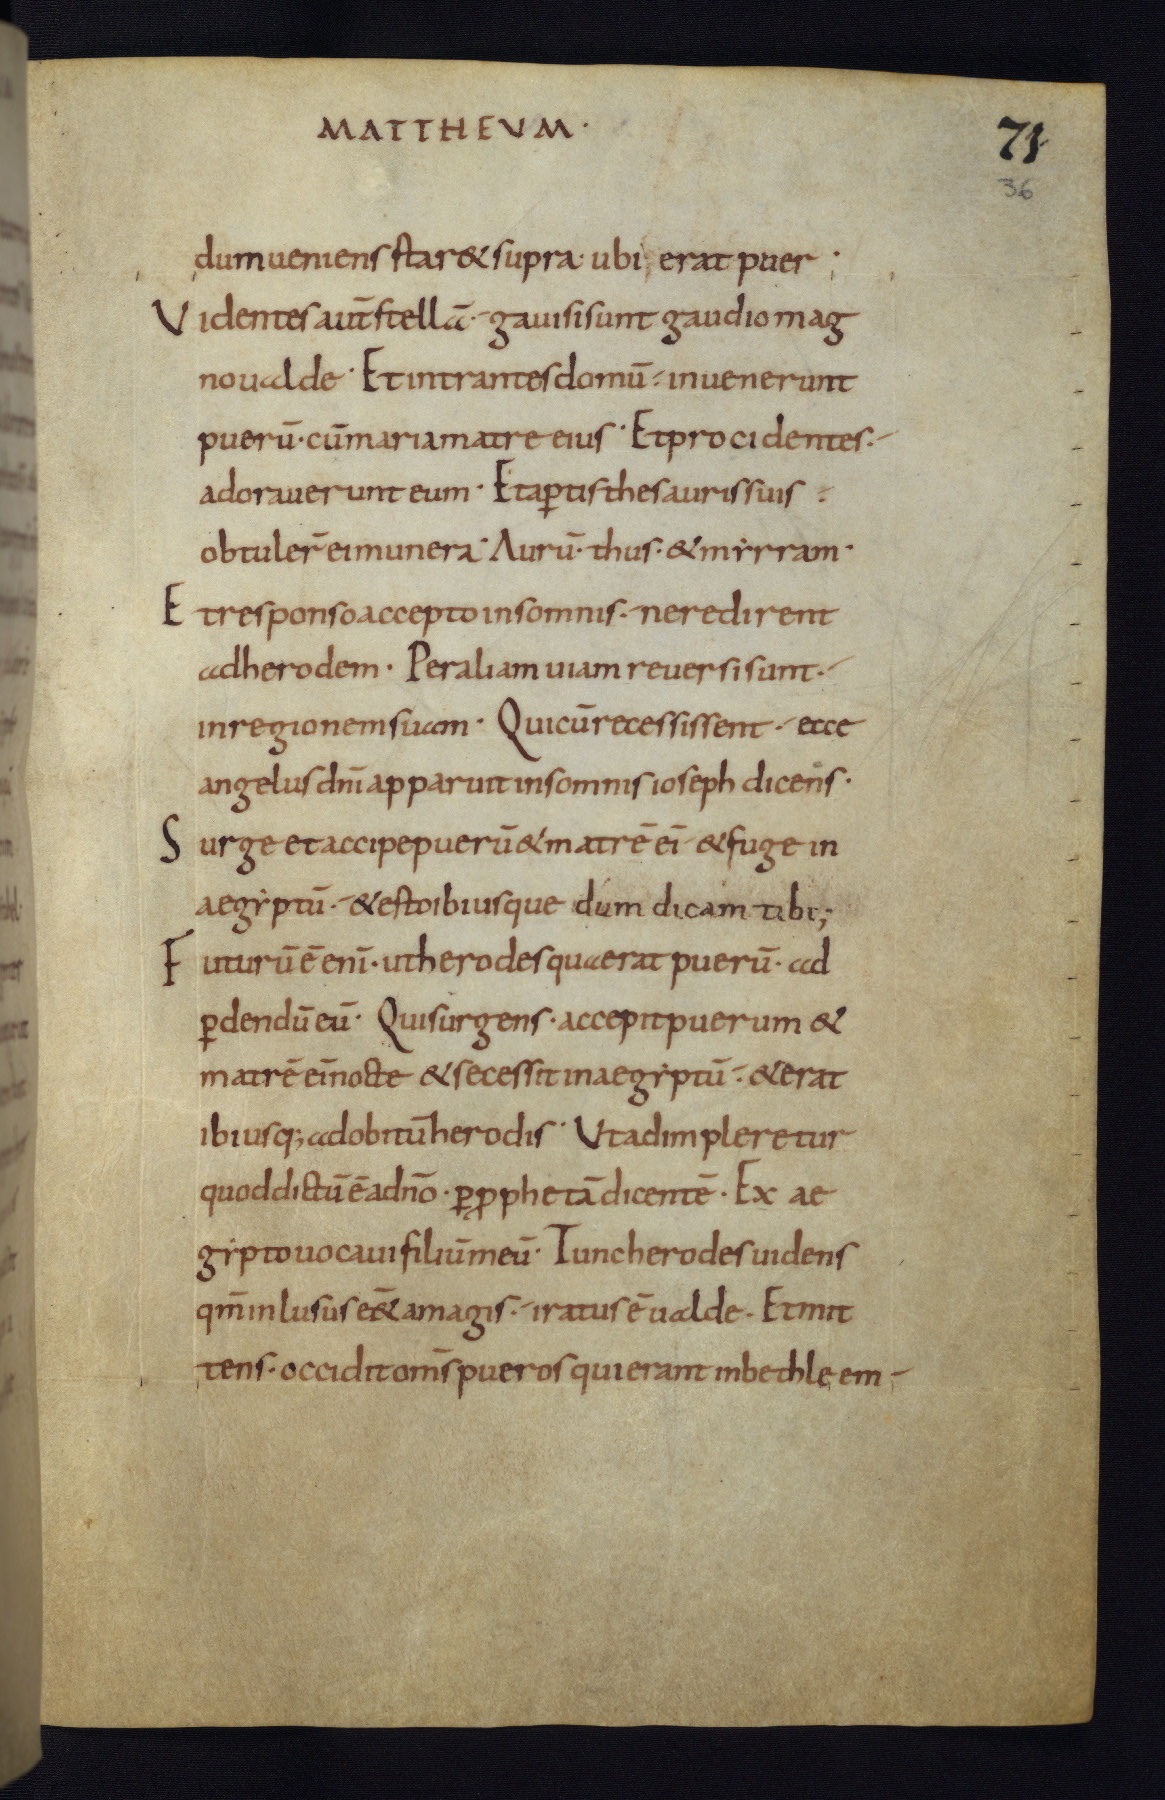 MATTHEVM·
71
36
dum ueniens star& supra· ubi erat puer·
Videntes aut̄ stellā· gauisi sunt gaudio mag
no ualde· Et intrantes domū· inuenerunt
puerū· cū maria matre eius· Et procidentes·
adorauerunt eum· Et aꝑtis thesauris suis·
obtuler̄ ei munera· Aurū· thus· & mẏrram·
Et responso accepto in somnis· ne redirent
ad herodem· Per aliam uiam reuersi sunt·
in regionem suam· Qui cū recessissent· ecce
angelus dn̄i apparuit in somnis ioseph dicens·
Surge et accipe puerū & matrē ei̅ & fuge in
aegẏptū· & esto ibi usque dum dicam tibi;
Futurū ē eni̅· ut herodes quaerat puerū· ad
ꝑdendū eū· Qui surgens· accepit puerum &
matrē ei̅ nocte & secessit in aegẏptū· & erat
ibi usq; ad obitū herodis· Vt adimpleretur
quod dictū ē a dn̄o· ꝑ ꝓphetā dicentē· Ex ae
gẏpto uocaui filiū meū· Tunc herodes uidens
qm̄ inlusus e&̄ a magis· iratus ē ualde· Et mit
tens· occidit om̄s pueros qui erant in bethleem